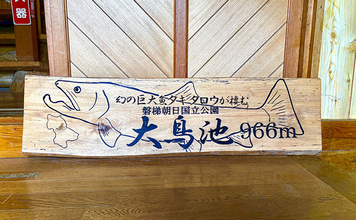 幻の巨大魚タキタロウが棲む
磐梯朝日国立公園
大鳥池 966m